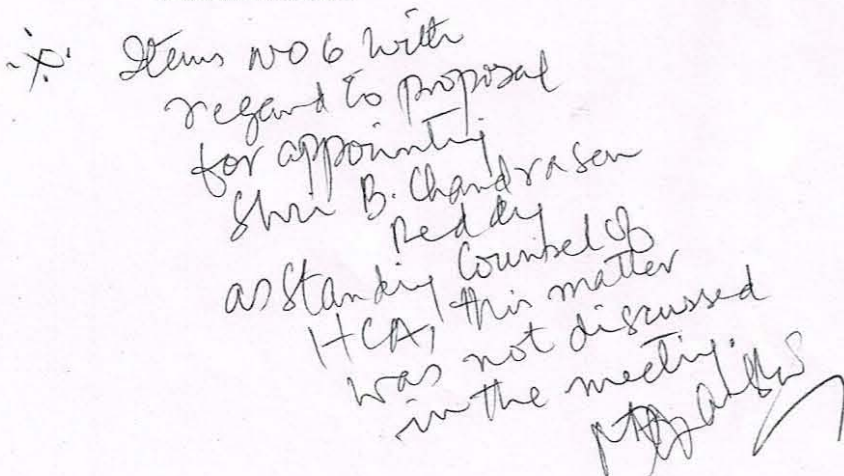 Items NO 6 with
regard to proposal
for appointing
Shri B. Chandrasen
Reddy
as Standing Counsel of
HCA, this matter
was not discussed
in the meeting.